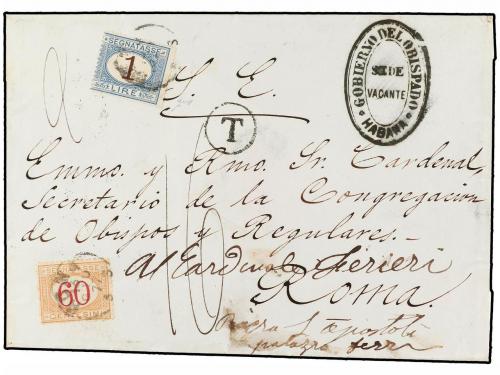 SEGNATASSE
1
LIRE
GOBIERNO DEL OBISPADO
SEDE
VACANTE
HABANA
S. E.
T
Emmo. y Rmo. Sr. Cardenal,
Secretario de la Congregacion
de Obispos y Regulares.—
Al Cardinale Ferieri
60
Roma.
palazzo